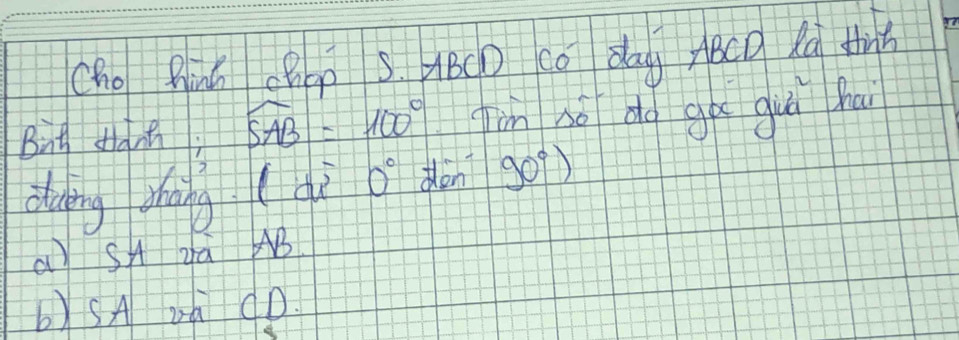 Cho hình chóp S.ABCD có đáy ABCD là hình
Bình Hành ; SAB = 100°. Tìm số đo góc giữa hai
đường thẳng. (từ 0° đến 90°)
a) SA và AB.
b) SA và CD.